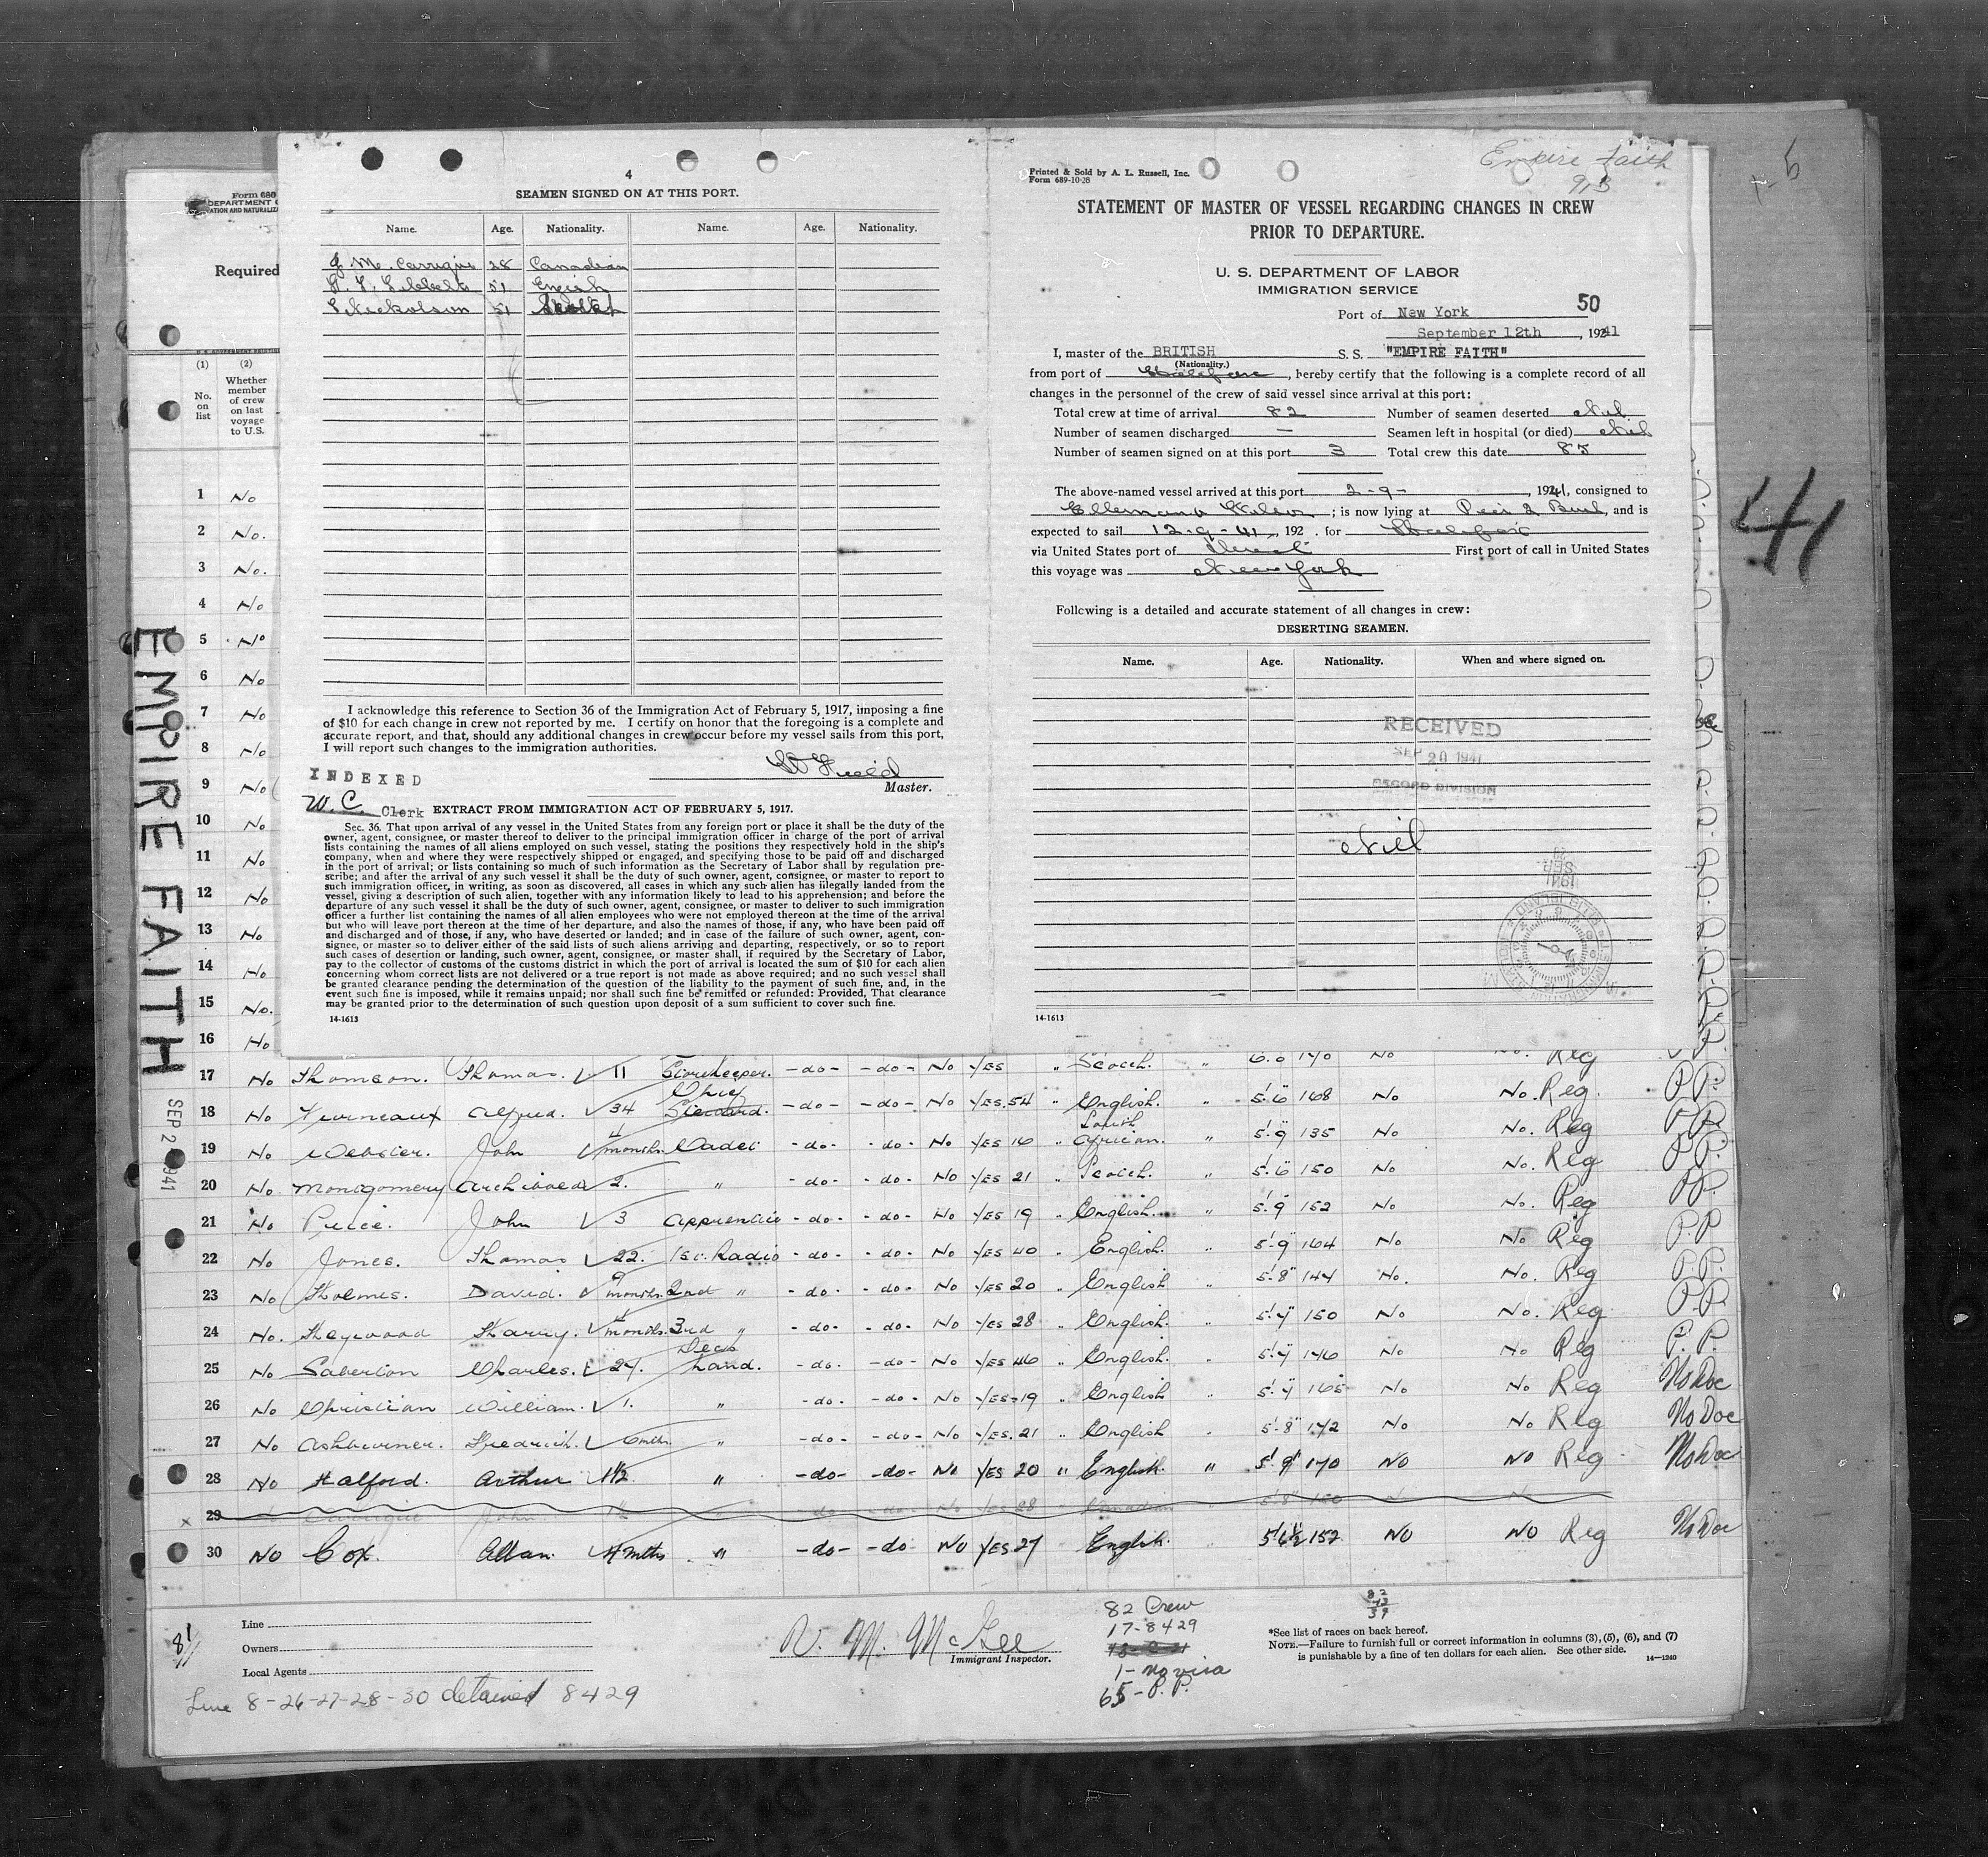 4
SEAMEN SIGNED ON AT THIS PORT.
Name. Age. Nationality. Name. Age. Nationality.
J. M. Carrigie 28 Canadian
51 English
51
I acknowledge this reference to Section 36 of the Immigration Act of February 5, 1917, imposing a fine
of $10 for each change in crew not reported by me. I certify on honor that the foregoing is a complete and
accurate report, and that, should any additional changes in crew occur before my vessel sails from this port,
I will report such changes to the immigration authorities.
Master.
INDEXED
W. C. Clerk
EXTRACT FROM IMMIGRATION ACT OF FEBRUARY 5, 1917.
Sec. 36. That upon arrival of any vessel in the United States from any foreign port or place it shall be the duty of the
owner, agent, consignee, or master thereof to deliver to the principal immigration officer in charge of the port of arrival
lists containing the names of all aliens employed on such vessel, stating the positions they respectively hold in the ship's
company, when and where they were respectively shipped or engaged, and specifying those to be paid off and discharged
in the port of arrival; or lists containing so much of such information as the Secretary of Labor shall by regulation pre-
scribe; and after the arrival of any such vessel it shall be the duty of such owner, agent, consignee, or master to report to
such immigration officer, in writing, as soon as discovered, all cases in which any such alien has illegally landed from the
vessel, giving a description of such alien, together with any information likely to lead to his apprehension; and before the
departure of any such vessel it shall be the duty of such owner, agent, consignee, or master to deliver to such immigration
officer a further list containing the names of all alien employees who were not employed thereon at the time of the arrival
but who will leave port thereon at the time of her departure, and also the names of those, if any, who have been paid off
and discharged and of those, if any, who have deserted or landed; and in case of the failure of such owner, agent, con-
signee, or master so to deliver either of the said lists of such aliens arriving and departing, respectively, or so to report
such cases of desertion or landing, such owner, agent, consignee, or master shall, if required by the Secretary of Labor,
pay to the collector of customs of the customs district in which the port of arrival is located the sum of $10 for each alien
concerning whom correct lists are not delivered or a true report is not made as above required; and no such vessel shall
be granted clearance pending the determination of the question of the liability to the payment of such fine, and, in the
event such fine is imposed, while it remains unpaid; nor shall such fine be remitted or refunded: Provided, That clearance
may be granted prior to the determination of such question upon deposit of a sum sufficient to cover such fine.
14-1613
Empire Faith
9/3
Printed & Sold by A. L. Russell, Inc.
Form 689-10-28
STATEMENT OF MASTER OF VESSEL REGARDING CHANGES IN CREW
PRIOR TO DEPARTURE.
U. S. DEPARTMENT OF LABOR
IMMIGRATION SERVICE
50
Port of New York
September 12th, 1941
I, master of the BRITISH S. S. "EMPIRE FAITH"
(Nationality.)
from port of Halifax, hereby certify that the following is a complete record of all
changes in the personnel of the crew of said vessel since arrival at this port:
Total crew at time of arrival 82 Number of seamen deserted Nil
Number of seamen discharged — Seamen left in hospital (or died) Nil
Number of seamen signed on at this port 3 Total crew this date 85
The above-named vessel arrived at this port 2-9-, 1941, consigned to
Ellerman & Wilson; is now lying at Pier 2 Bush, and is
expected to sail 12-9-41, 192 . for Halifax
via United States port of direct First port of call in United States
this voyage was New York
Following is a detailed and accurate statement of all changes in crew:
DESERTING SEAMEN.
Name. Age. Nationality. When and where signed on.
RECEIVED
SEP 20 1941
RECORD DIVISION
Nil
14-1613
41
EMPIRE FAITH
SEP 2 1941
Form 680
DEPARTMENT
Required
(1) (2)
No. on list
Whether member of crew on last voyage to U.S.
1 No
2 No.
3 No.
4 No
5 No
6 No
7 No
8 No
9 No
10 No
11 No
12 No
13 No
14 No
15 No.
16 No
17 No Thomson. Thomas. 11 Storekeeper. -do- -do- No Yes " Scotch. " 6.0 170 No No. Reg P.P.
18 No Furneaux Alfred. 34 Chief Steward. -do- -do- No Yes. 54 " English. " 5'6" 168 No. Reg. P.P.
19 No Webster. John 4 months. Cadet -do- -do- No Yes 16 " South African. " 5'9" 135 No No. Reg P.P.
20 No Montgomery Archibald 2. " -do- -do- No Yes 21 " Scotch. " 5'6" 150 No No. Reg P.P.
21 No Price. John 3 Apprentice -do- -do- No Yes 19 " English. " 5'9" 152 No No. Reg P.P.
22 No Jones. Thomas 22. 1st. Radio -do- -do- No Yes 40 " English. " 5'9" 164 No No Reg P.P
23 No Holmes. David. 9 months. 2nd " -do- -do- No Yes 20 " English " 5'8" 144 No. No. Reg P.P.
24 No. Heywood Harry. 4 months. 3rd " -do- -do- No Yes 28 " English. " 5'4" 150 No No. Reg. P.P.
25 No Saberton Charles. 24. Deck hand. -do- -do- No Yes 46 " English. " 5'4" 146 No No Reg P.P.
26 No Christian William. 1. " -do- -do- No Yes 19 " English " 5'4" 165 No No Reg No Doc
27 No Ashburner. Fredrick. 6 mths. " -do- -do- No Yes. 21 " English " 5'8" 142 No No Reg No Doc
28 No Halford. Arthur 1½. " -do- -do- No Yes 20 " English. " 5'9" 170 No No Reg No Doc
29 Carrigie John Yes 28 Canadian 5'8" 150
30 No Cox. Allan. 4 mths " -do- -do- No Yes 27 English. 5'6½" 152 No No Reg No Doc
Line
Owners
Local Agents
V. M. McGee
Immigrant Inspector.
82 Crew
17-8429
1- no visa
65- P.P.
*See list of races on back hereof.
NOTE.—Failure to furnish full or correct information in columns (3), (5), (6), and (7)
is punishable by a fine of ten dollars for each alien. See other side. 14—1240
Line 8-26-27-28-30 detained 8429